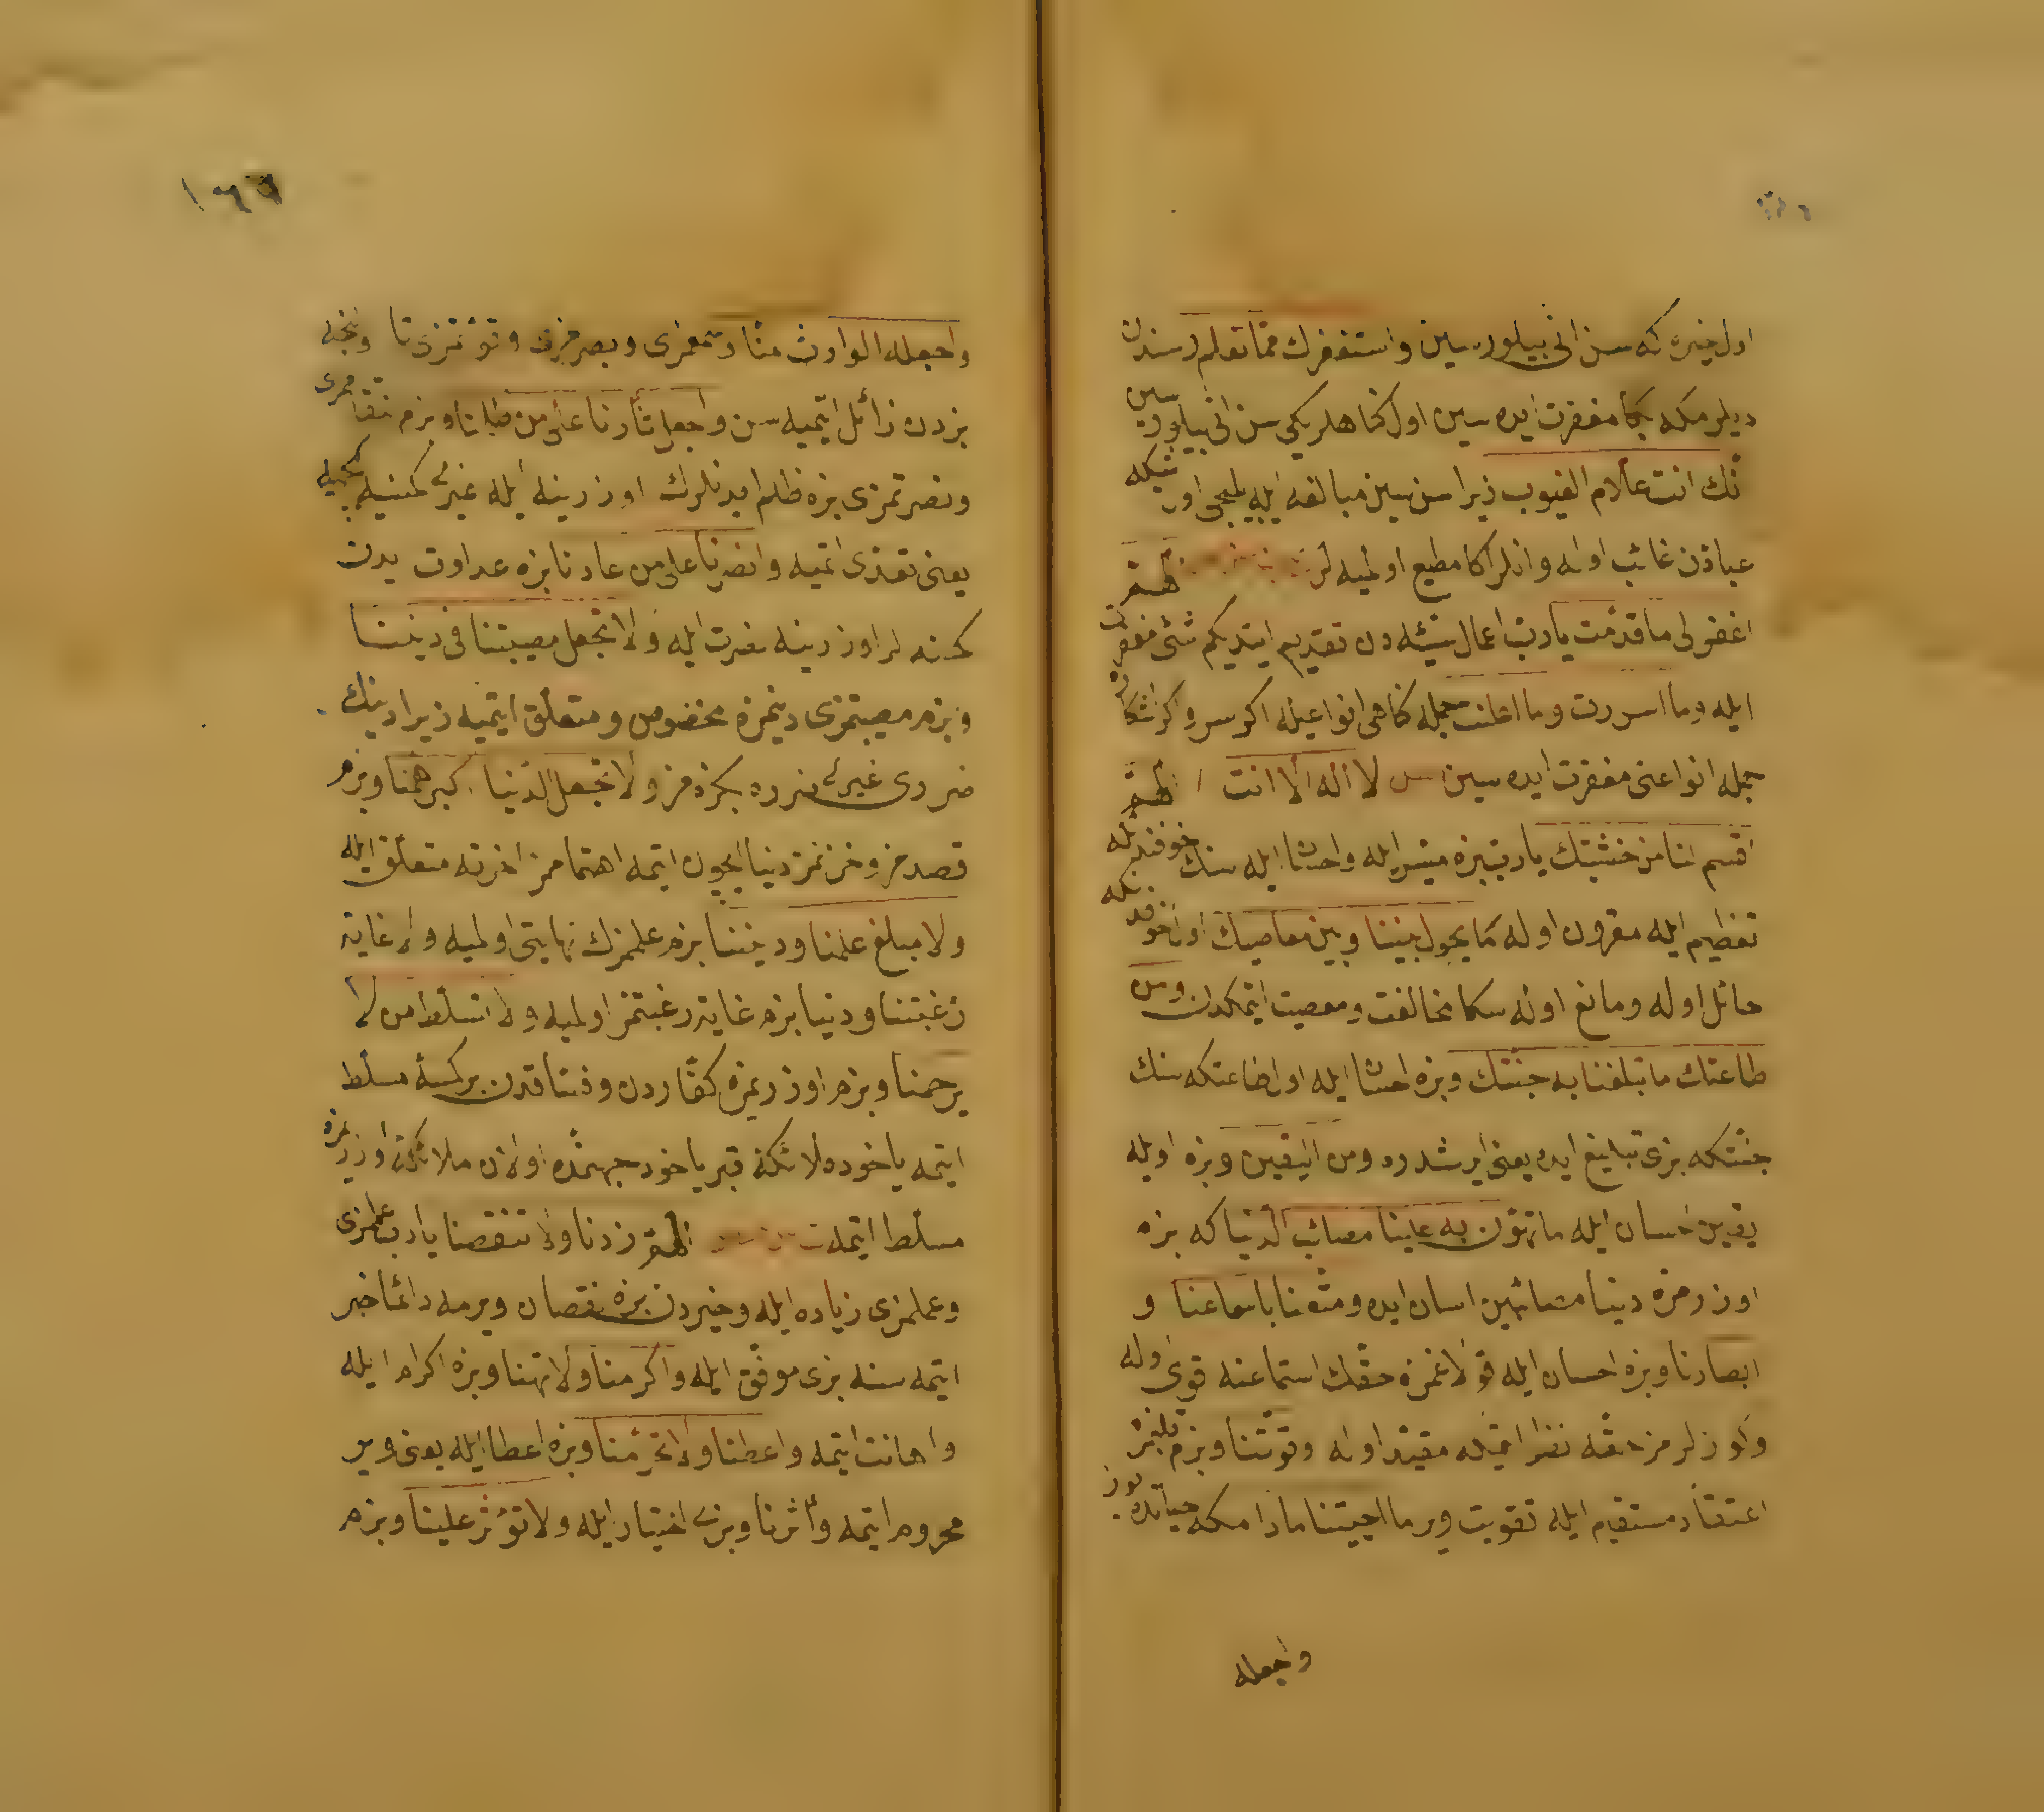 اول خيره كه سن انى بيلورسين واستغفرك مما تعلم وسندن
ديلرمكه بكا مغفرت ايده سين اول كناهلريكى سن انى بيلورسين
انك انت علام الغيوب زيرا سن سين مبالغه ايله بلجى اول شيكه
عباددن غائب اوله وانلر اكا مطلع اولميه لر اللهم
اغفر لى ما قدمت يا رب اعمال سيئه دن تقديم ايتديكم شئى مغفرت
ايله وما اسررت وما اعلنت جمله كناهى انواعيله اكر سر واكر اشكاره
جمله انواعنى مغفرت ايده سين لا اله الا انت اللهم
اقسم لنا من خشيتك يا رب بزه ميسر ايله واحسان ايله سنك خوفندنكه
تعظيم ايله مقرون اوله ما يحول بيننا وبين معاصيك اول خوفدنكه
حائل اوله ومانع اوله سكا مخالفت ومعصيت ايتمكدن ومن
طاعتك ما تبلغنا به جنتك وبزه احسان ايله اول طاعتكه سنك
جنتكه بزى تبليغ ايده يعنى ايرشدره ومن اليقين وبزه اويله
يقين احسان ايله ما تهون به علينا مصائب الدنيا كه بزه
اوزرمزه دنيا مصائبين اسان ايده ومتعنا باسماعنا و
ابصارنا وبزه احسان ايله قولاغمزه حقك استماعنه قوى اوله
وكوزلرمز حقه نظر ايتمكه مقيد اوله وقوتنا وبزم قلبمزه
اعتقاد مستقيم ايله تقويت وير ما احييتنا مادامكه حياتده يوز
واجعله
١٦٦
واجعله الوارث منا وسمعمزى وبصرمزى وقوتمزى تا وانجه
بزدن زائل ايتميه سن واجعل ثأرنا على من ظلمنا وبزم انتقاممزى
ونصرتمزى بزه ظلم ايدنلرك اوزرينه ايله غيرى كمسنيه
يعنى تعدى اتميه وانصرنا على من عادانا بزه عداوت ايدن
كمسنه لر اوزرينه نصرت ايله ولا تجعل مصيبتنا فى ديننا
وبزم مصيبتمزى دينمزه مخصوص ومتعلق ايتميه زيرا دينك
ضررى غيرى ضرره بكزه مز ولا تجعل الدنيا اكبر همنا وبزم
قصدمز وحزنمز دنيا ايچون ايتمه اهتمامز اخرته متعلق ايله
ولا مبلغ علمنا ودنينا بزم علممزك نهايتى اولميه ولا غاية
رغبتنا ودنيا بزم غايت رغبتمز اولميه ولا تسلط من لا
يرحمنا وبزم اوزريمزه كفاردن وفساقدن بر كمسه مسلط
ايتمه ياخود ملائكه قبر ياخود جهنمده اولان ملائكه اوزريمزه
مسلط ايتمه اللهم زدنا ولا تنقصنا يا رب علممزى
وعملمزى زياده ايله وخيردن بزه نقصان ويرمه دائما خير
ايتمه سنه بزى موفق ايله واكرمنا ولا تهنا وبزه اكرام ايله
واهانت ايتمه واعطنا ولا تحرمنا وبزه اعطا ايله يعنى وير
محروم ايتمه وآثرنا وبزى اختيار ايله ولا تؤثر علينا وبزم